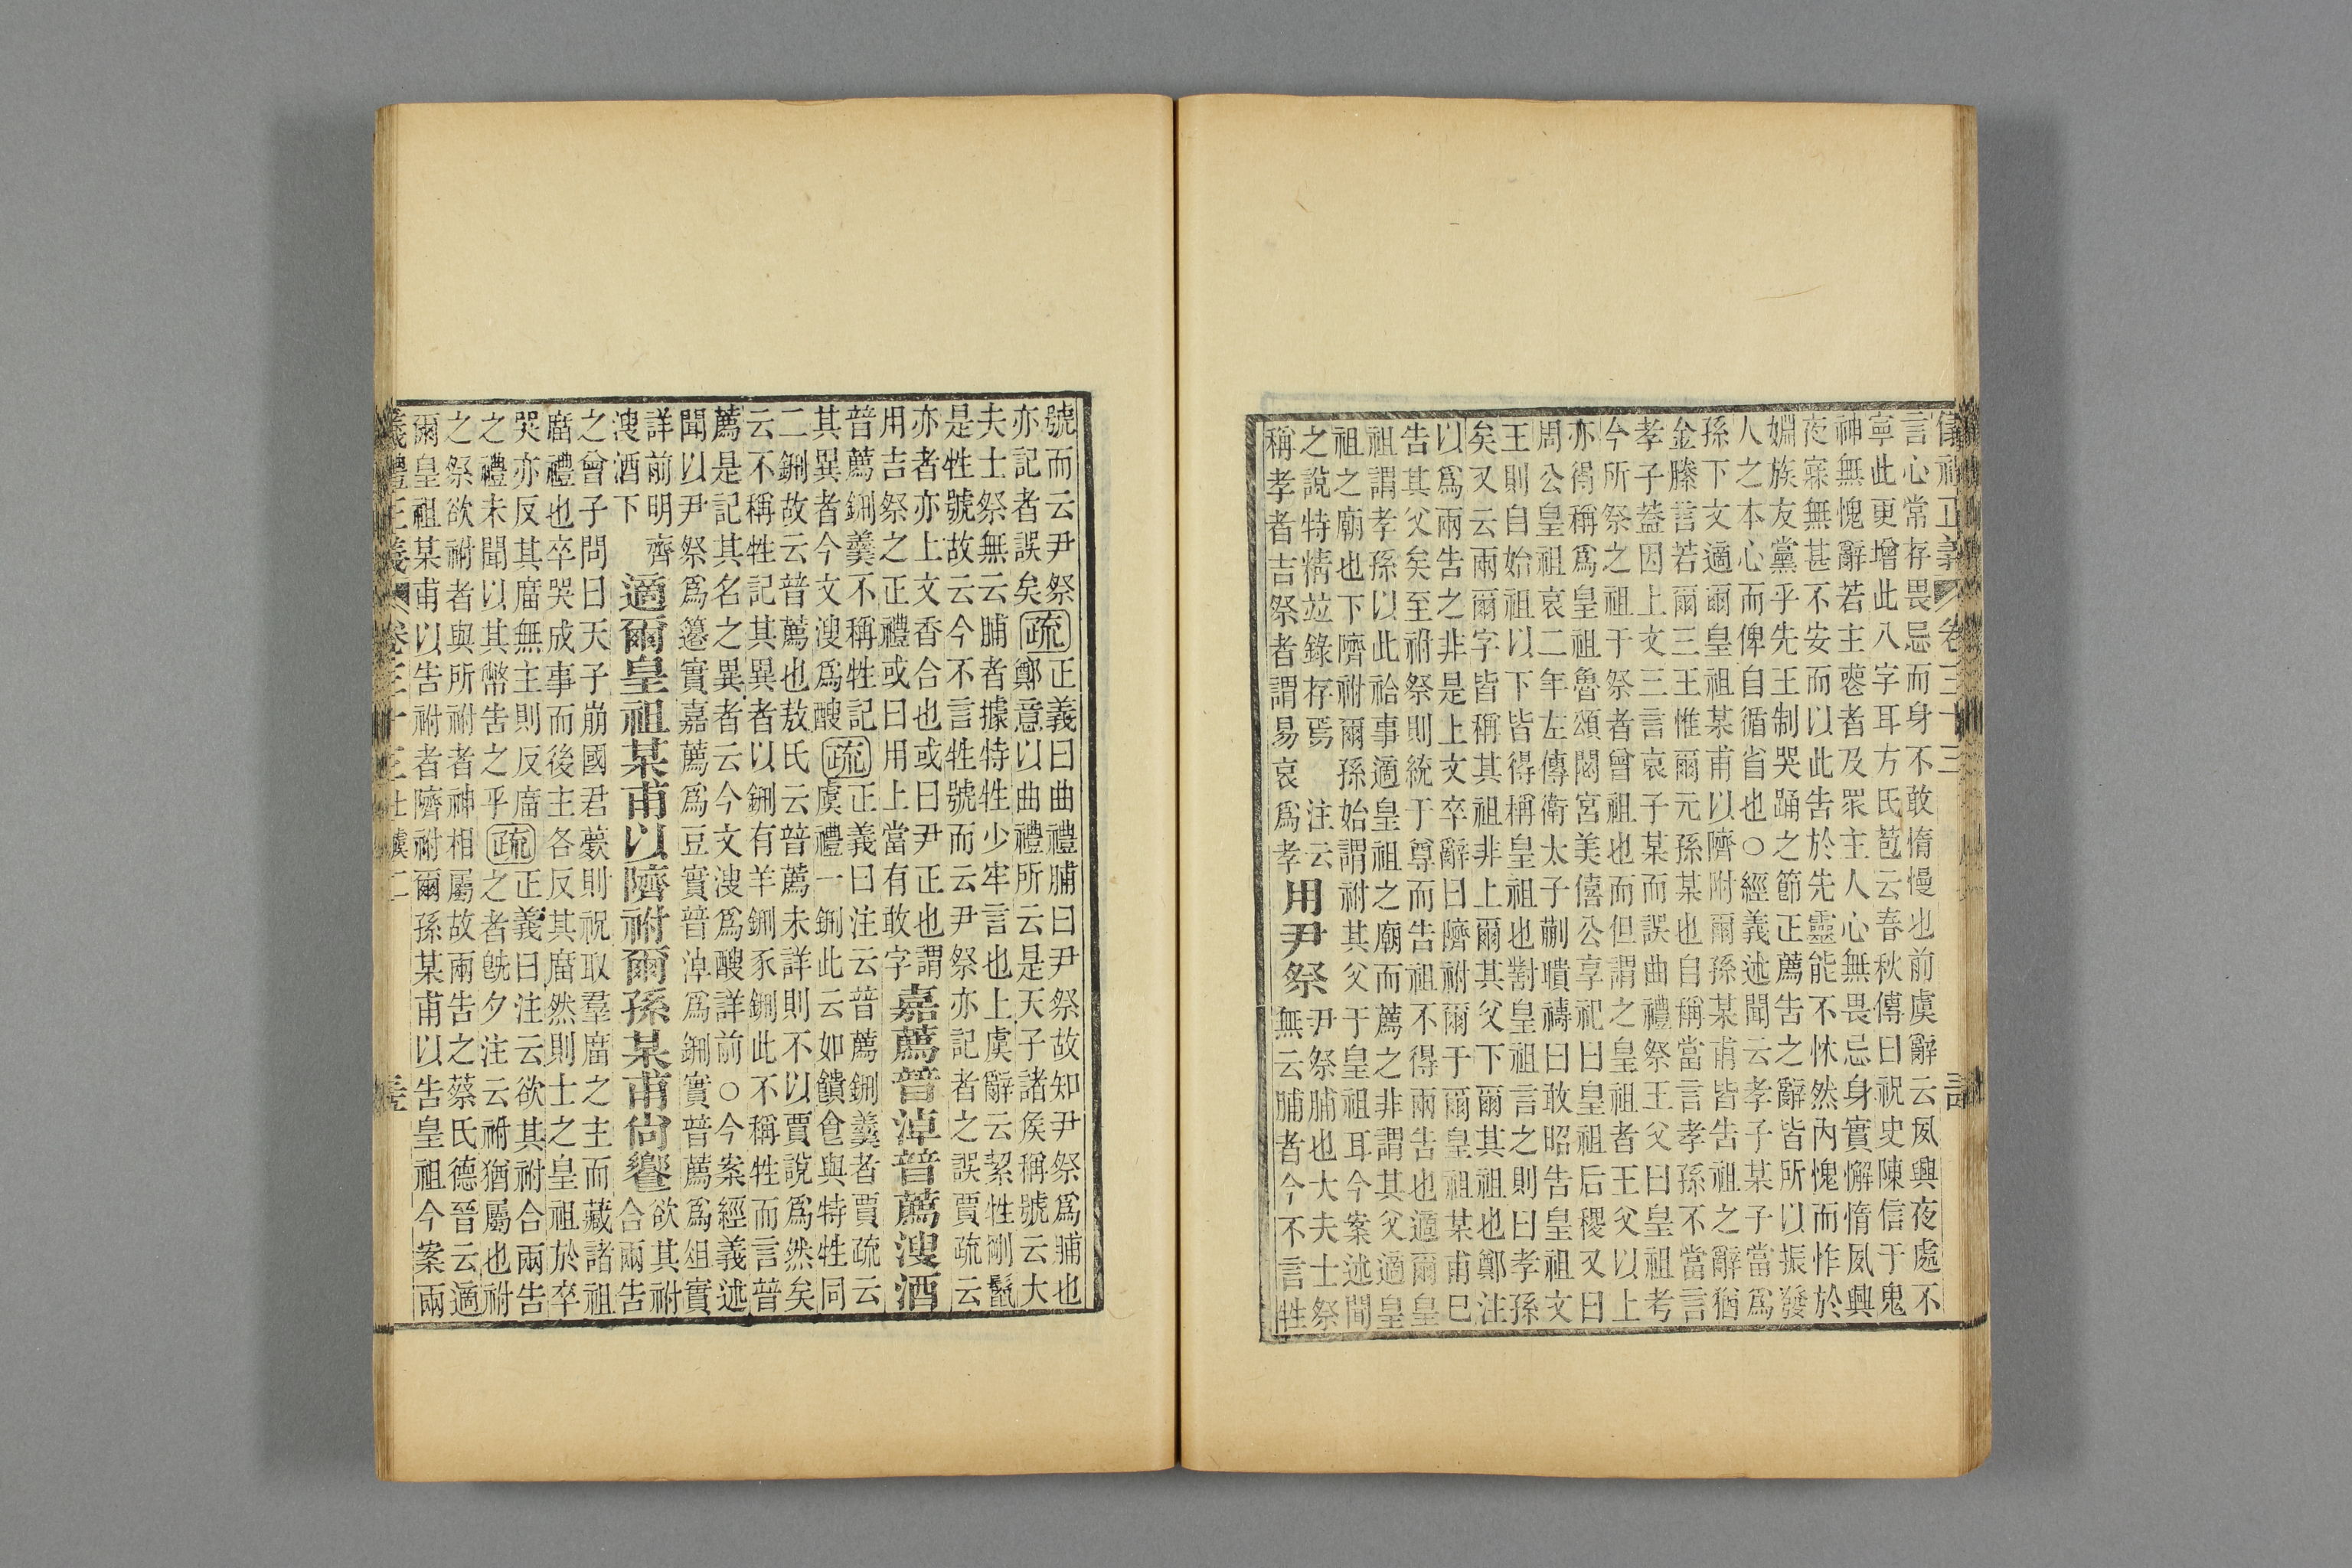 言心常存畏忌而身不敢惰慢也前虞辭云夙興夜處不
寧此更增此八字耳方氏苞云春秋傳曰祝史陳信于鬼
神無愧辭若主䘮者及眾主人心無畏忌身實懈惰夙興
夜寐無甚不安而以此告於先靈能不怵然內愧而怍於
婣族友黨乎先王制哭踊之節正薦告之辭皆所以振發
人之本心而俾自循省也○經義述聞云孝子某子當爲
孫下文適爾皇祖某甫以隮附爾孫某甫皆告祖之辭猶
金縢言若爾三王惟爾元孫某也自稱當言孝孫不當言
孝子葢因上文三言哀子某而誤曲禮祭王父曰皇祖考
今所祭之祖于祭者曾祖也而但謂之皇祖者王父以上
亦得稱爲皇祖魯頌閟宮美僖公享祀曰皇祖后稷又曰
周公皇祖哀二年左傳衛太子蒯聵禱曰敢昭告皇祖文
王則自始祖以下皆得稱皇祖也對皇祖言之則曰孝孫
矣又云兩爾字皆稱其祖非上爾其父下爾其祖也鄭注
以爲兩告之非是上文卒辭曰隮祔爾于爾皇祖某甫巳
告其父矣至祔祭則統于尊而告祖不得兩告也適爾皇
祖謂孝孫以此祫事適皇祖之廟而薦之非謂其父適皇
祖之廟也下隮祔爾孫始謂祔其父于皇祖耳今案述聞
之說特精竝錄存焉 注云 用尹祭 尹祭脯也大夫士祭
稱孝者吉祭者謂易哀爲孝 無云脯者今不言牲
號而云尹祭 正義曰曲禮脯曰尹祭故知尹祭爲脯也
亦記者誤矣疏鄭意以曲禮所云是天子諸侯稱號云大
夫士祭無云脯者據特牲少牢言也上虞辭云絜牲剛鬣
是牲號故云今不言牲號而云尹祭亦記者之誤賈疏云
亦者亦上文香合也或曰尹正也謂
用吉祭之正禮或曰用上當有敢字 嘉薦普淖普薦溲酒
普薦鉶羹不稱牲記 正義曰注云普薦鉶羹者賈疏云
其異者今文溲爲醙疏虞禮一鉶此云如饋食與特牲同
二鉶故云普薦也敖氏云普薦未詳則不以賈說爲然矣
云不稱牲記其異者以鉶有羊鉶豕鉶此不稱牲而言普
薦是記其名之異者云今文溲爲醙詳前○今案經義述
聞以尹祭爲籩實嘉薦爲豆實普淖爲鉶實普薦爲俎實
詳前明齊
溲酒下 適爾皇祖某甫以隮祔爾孫某甫尚饗 欲其祔合兩告
之曾子問曰天子崩國君薨則祝取羣廟之主而藏諸祖
廟禮也卒哭成事而後主各反其廟然則士之皇祖於卒
哭亦反其廟無主則反廟 正義曰注云欲其祔合兩告
之禮未聞以其幣告之乎疏之者旣夕注云祔猶屬也祔
之祭欲祔者與所祔者神相屬故兩告之蔡氏德晉云適
爾皇祖某甫以告祔者隮祔爾孫某甫以告皇祖今案兩